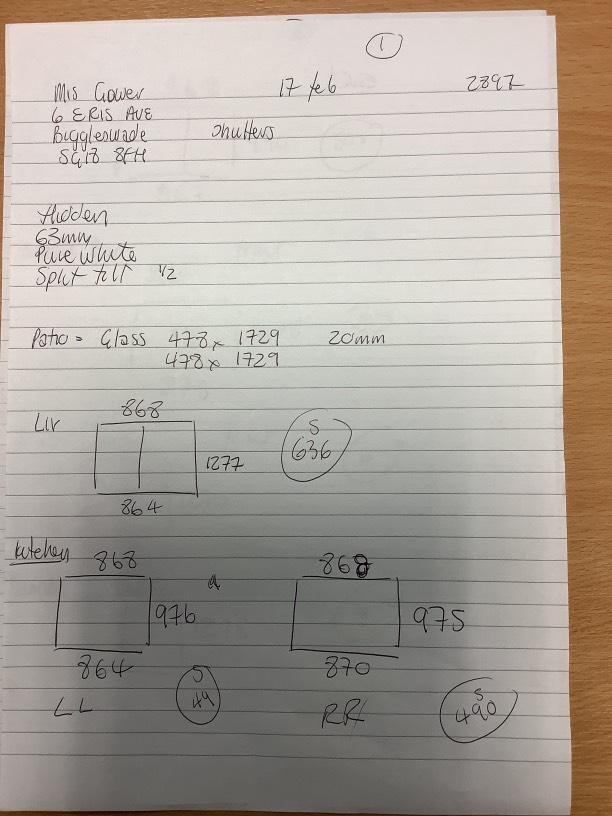 1
Mrs Gower 17 feb 2897
6 ERIS AVE
Biggleswade shutters
SG18 8FH
Hidden
63mm
Pure white
Split tilt 1/2
Patio = Glass 478 x 1729 20mm
478 x 1729
868
Liv S
636
1277
864
Kitchen 868 868
976 975
864 870
S 49 S 490
LL RR